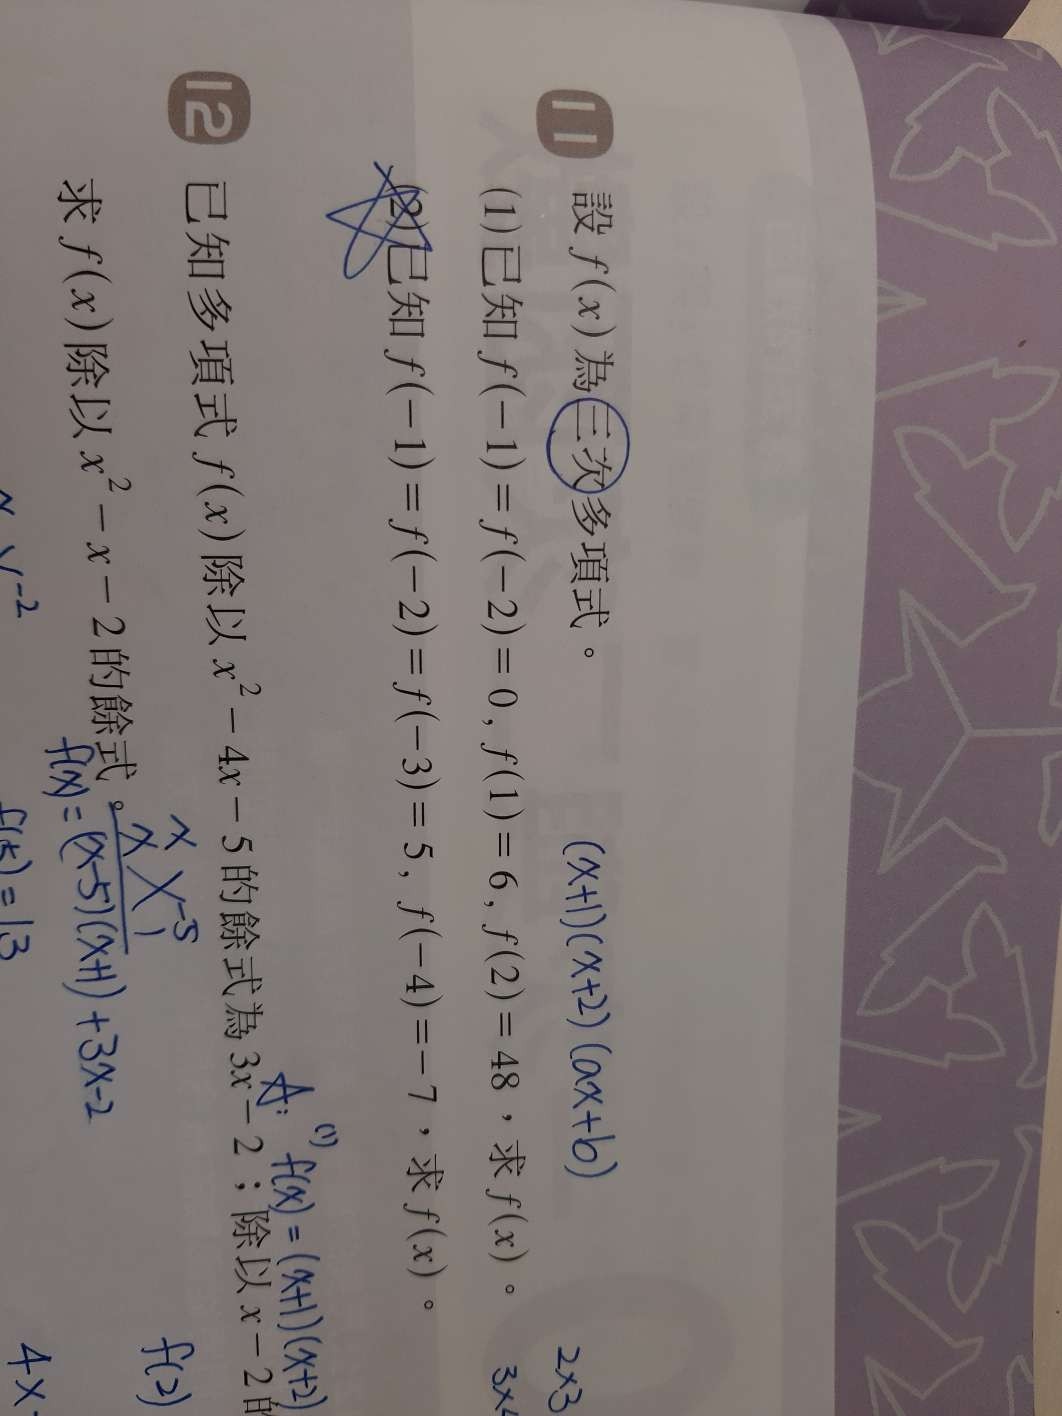 11 設 f(x) 為三次多項式。
(x+1)(x+2)(ax+b)
2×3
(1) 已知 f(-1)=f(-2)=0, f(1)=6, f(2)=48，求 f(x)。
(2) 已知 f(-1)=f(-2)=f(-3)=5, f(-4)=-7，求 f(x)。
A: (1) f(x)=(x+1)(x+2)
12 已知多項式 f(x) 除以 x²-4x-5 的餘式為 3x-2；除以 x-2 的
x -5
x 1
f(2)
求 f(x) 除以 x²-x-2 的餘式。
f(x)=(x-5)(x+1)+3x-2
-2
f(5)=13
4x